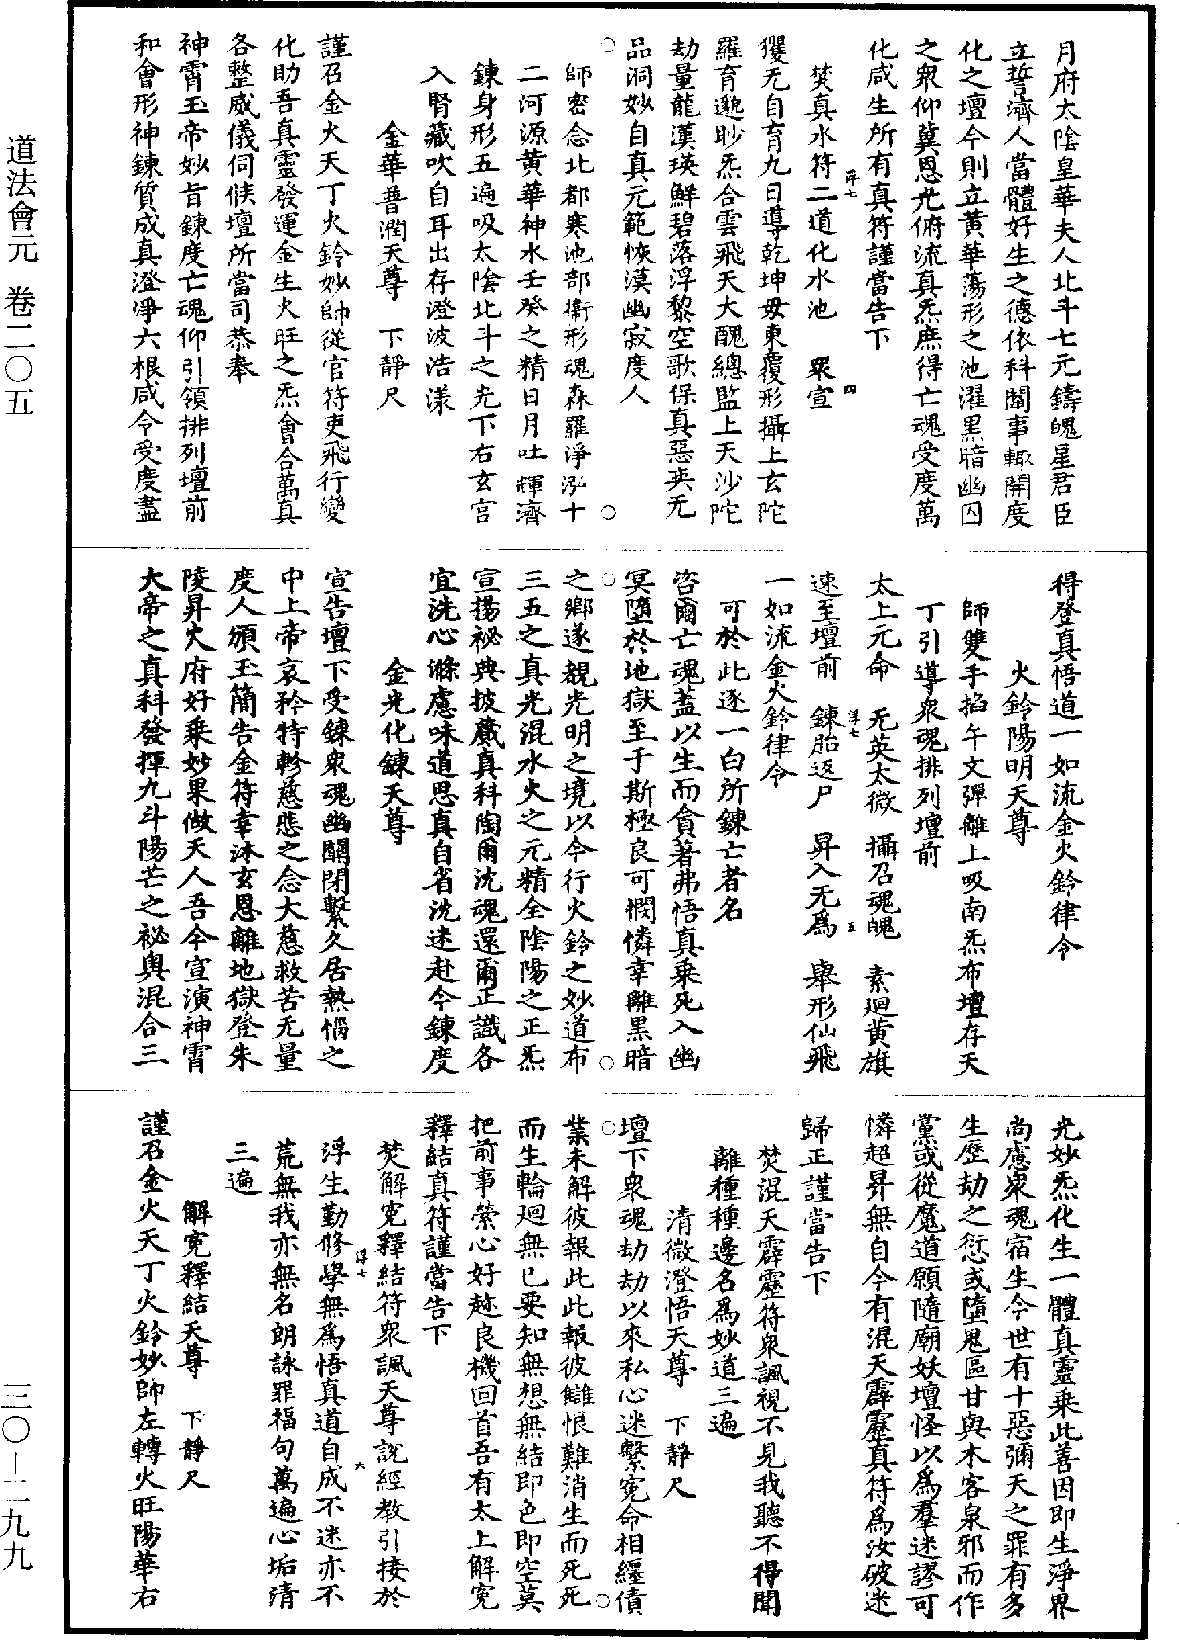 道法會元　卷二〇五
月府太陰皇華夫人北斗七元鑄魄星君臣
立誓濟人當體好生之德依科闡事輙開度
化之壇今則立黃華蕩形之池濯黑暗幽囚
之衆仰冀恩光俯流真炁庶得亡魂受度萬
化咸生所有真符謹當告下
焚真水符二道化水池　衆宣
玃无自育九日導乾坤毋東覆形攝上玄陀
羅育邈眇炁合雲飛天大醜總監上天沙陀
劫量龍漢瑛鮮碧落浮黎空歌保真惡奕无
品洞妙自真元範恢漠幽寂度人
師密念北都寒池部衛形魂森羅淨泓十
二河源黃華神水壬癸之精日月吐輝濟
鍊身形五遍吸太陰北斗之光下右玄宮
入腎藏吹自耳出存澄波浩漾
金華普潤天尊　下靜尺
謹召金火天丁火鈴妙帥從官符吏飛行變
化助吾真靈發運金生火旺之炁會合萬真
各整威儀伺候壇所當司恭奉
神霄玉帝妙旨鍊度亡魂仰引領排列壇前
和會形神鍊質成真澄凈六根咸令受度盡
得登真悟道一如流金火鈴律令
火鈴陽明天尊
師雙手掐午文彈離上吸南炁布壇存天
丁引導衆魂排列壇前
太上元命　无英太微　攝召魂魄　素廻黃旗
速至壇前　鍊胎返尸　昇入无爲　舉形仙飛
一如流金火鈴律令
可於此逐一白所鍊亡者名
咨爾亡魂蓋以生而貪著弗悟真乗死入幽
冥墮於地獄至于斯極良可憫憐幸離黑暗
之鄉遂親光明之境以今行火鈴之妙道布
三五之真光混水火之元精全陰陽之正炁
宣揚祕典披蕆真科陶爾沈魂還爾正識各
宜洗心滌慮味道思真自省沈迷赴今鍊度
金光化鍊天尊
宣告壇下受鍊衆魂幽關閉繫久居熱惱之
中上帝哀矜特軫慈悲之念大慈救苦无量
度人頒玉簡告金符幸沐玄恩離地獄登朱
陵昇火府好乗妙果做天人吾今宣演神霄
大帝之真科發揮九斗陽芒之祕奥混合三
光妙炁化生一體真靈乗此善因即生淨界
尚慮衆魂宿生今世有十惡彌天之罪有多
生歷劫之愆或墮鬼區甘與木客泉邪而作
黨或從魔道願隨廟妖壇怪以爲羣迷謬可
憐超昇無自今有混天霹靂真符爲汝破迷
歸正謹當告下
焚混天霹靂符衆諷視不見我聽不得聞
離種種邊名爲妙道三遍
清微澄悟天尊　下靜尺
壇下衆魂劫劫以來私心迷繫寃命相纏債
業未解彼報此此報彼讎恨難消生而死死
而生輪廻無已要知無想無結即色即空莫
把前事縈心好趂良機回首吾有太上解寃
釋結真符謹當告下
焚解寃釋結符衆諷天尊說經教引接於
浮生勤修學無爲悟真道自成不迷亦不
荒無我亦無名朗詠罪福句萬遍心垢清
三遍
解寃釋結天尊　下靜尺
謹召金火天丁火鈴妙帥左轉火旺陽華右
三〇—二九九